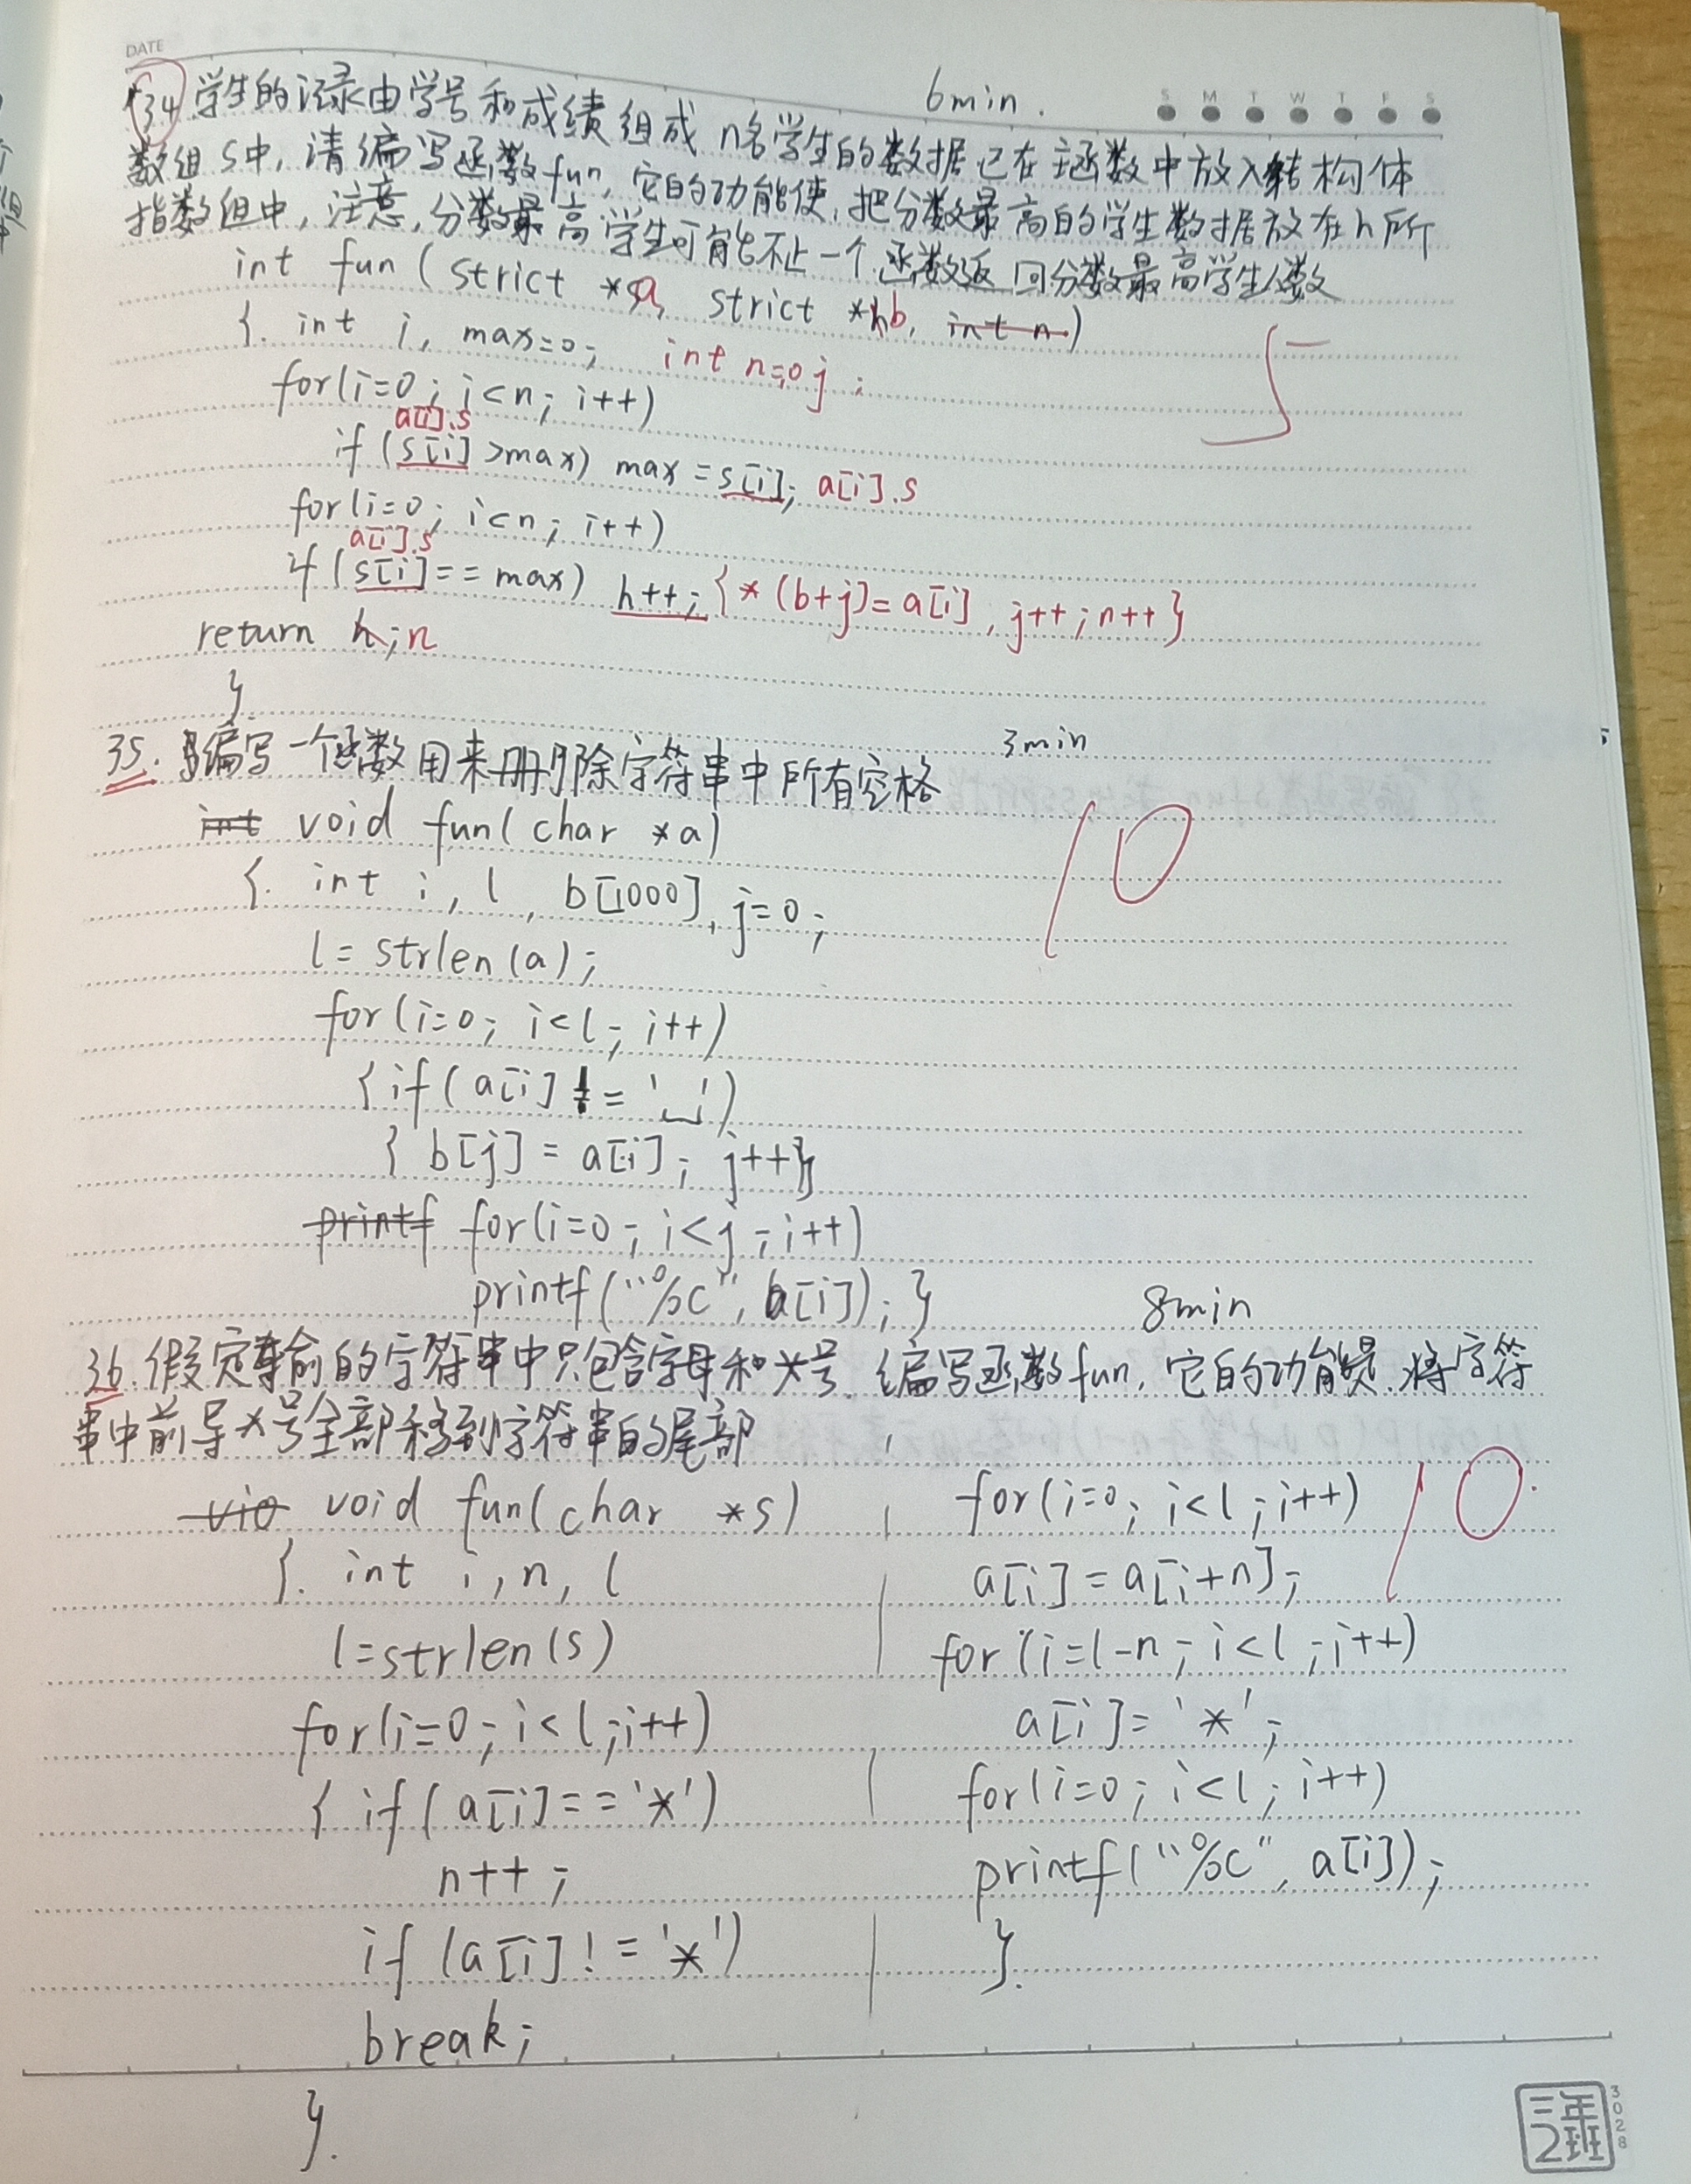 DATE
S M T W T F S
34 学生的记录由学号和成绩组成 n名学生的数据已在主函数中放入结构体
6min.
数组S中,请编写函数fun,它的功能使,把分数最高的学生数据放在h所
指数组中,注意,分数最高学生可能不止一个 函数返回分数最高学生人数
int fun (strict *a, strict *b, int n)
{. int i, max=0; int n=0 j;
5
for(i=0; i<n; i++)
a[i].s
if (s[i] >max) max =s[i]; a[i].s
for(i=0; i<n; i++)
a[i].s
if (s[i]== max) h++; {*(b+j)=a[i], j++;n++}
return h;n
}
35. 编写一个函数用来删除字符串中所有空格
3min
int void fun(char *a)
10
{. int i, l, b[1000], j=0;
l= strlen(a);
for(i=0; i<l; i++)
{if(a[i] != '␣')
{ b[j] = a[i]; j++}}
printf for(i=0; i<j; i++)
printf("%c", b[i]); }
8min
36. 假定输的字符串中只包含字母和*号. 编写函数fun, 它的功能是.将字符
串中前导*号全部移到字符串的尾部
10.
vio void fun(char *s)
{. int i,n, l
l=strlen(s)
for(i=0; i<l;i++)
{ if(a[i]=='*')
n++;
if (a[i]!='*')
break;
}.
for(i=0; i<l;i++)
a[i]=a[i+n];
for(i=l-n; i<l;i++)
a[i]='*';
for(i=0; i<l; i++)
printf("%c", a[i]);
}.
三年2班
3028